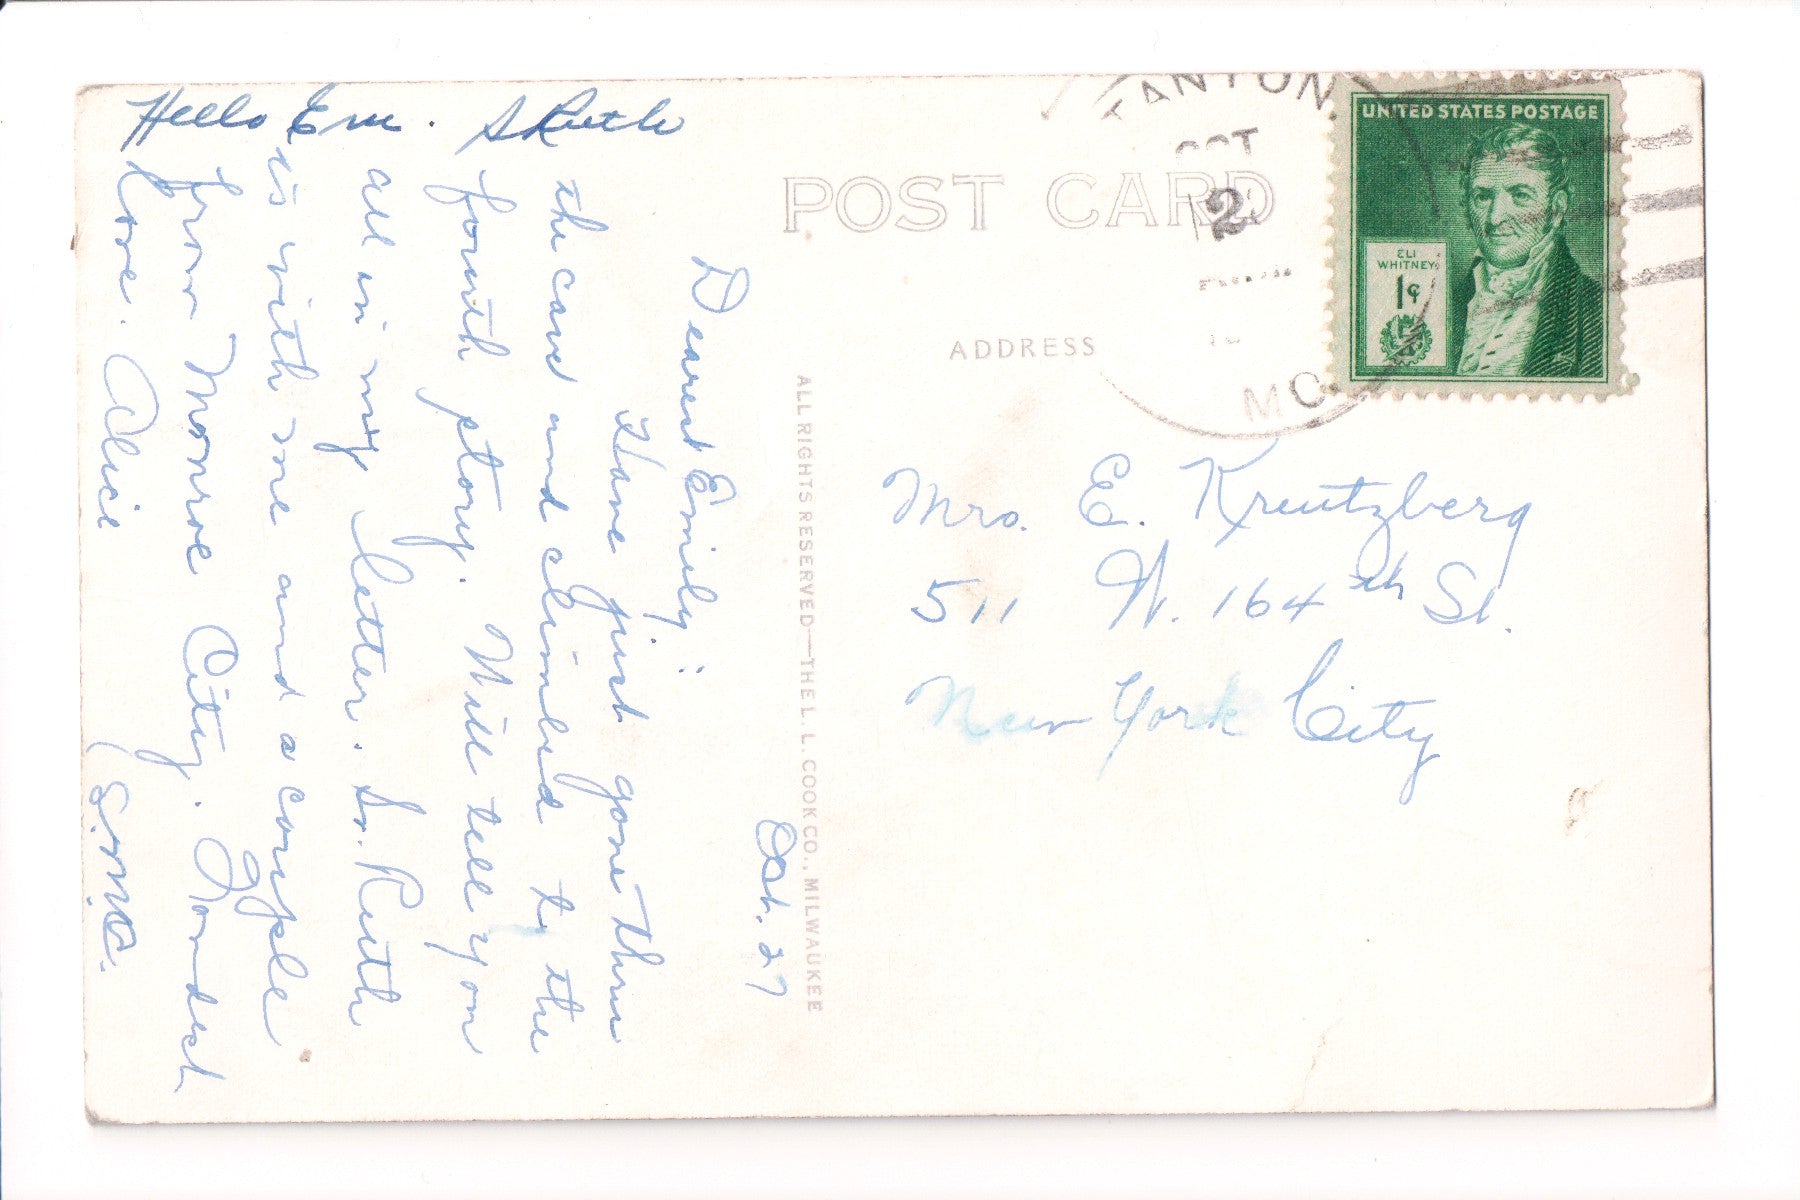 Hello Em. S Ruth
Oct. 27
Dearest Emily:
Have just gone thru
the cave and climbed to the
fourth story. Will tell you
all in my letter. Sr. Ruth
is with me and a couple
from Monroe City. Fondest
Love. Alice
POST CARD
ADDRESS
ALL RIGHTS RESERVED—THE L. L. COOK CO., MILWAUKEE
TANTON
OCT
2
MO.
UNITED STATES POSTAGE
ELI
WHITNEY
1¢
Mrs. E. Kreutzberg
511 W. 164th St.
New York City